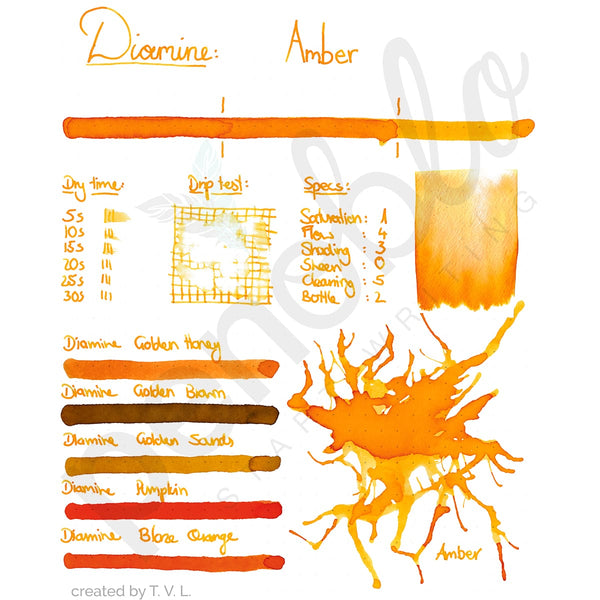 Diamine: Amber
Dry time:
5s
10s
15s
20s
25s
30s
Drip test:
Specs:
Saturation: 1
Flow: 4
Shading: 3
Sheen: 0
Cleaning: 5
Bottle: 2
Diamine Golden Honey
Diamine Golden Brown
Diamine Golden Sands
Diamine Pumpkin
Diamine Blaze Orange
Amber
penoblo
SMART WRITING
created by T. V. L.